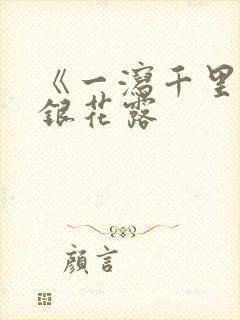 《一瀉千里
銀花露
顏言